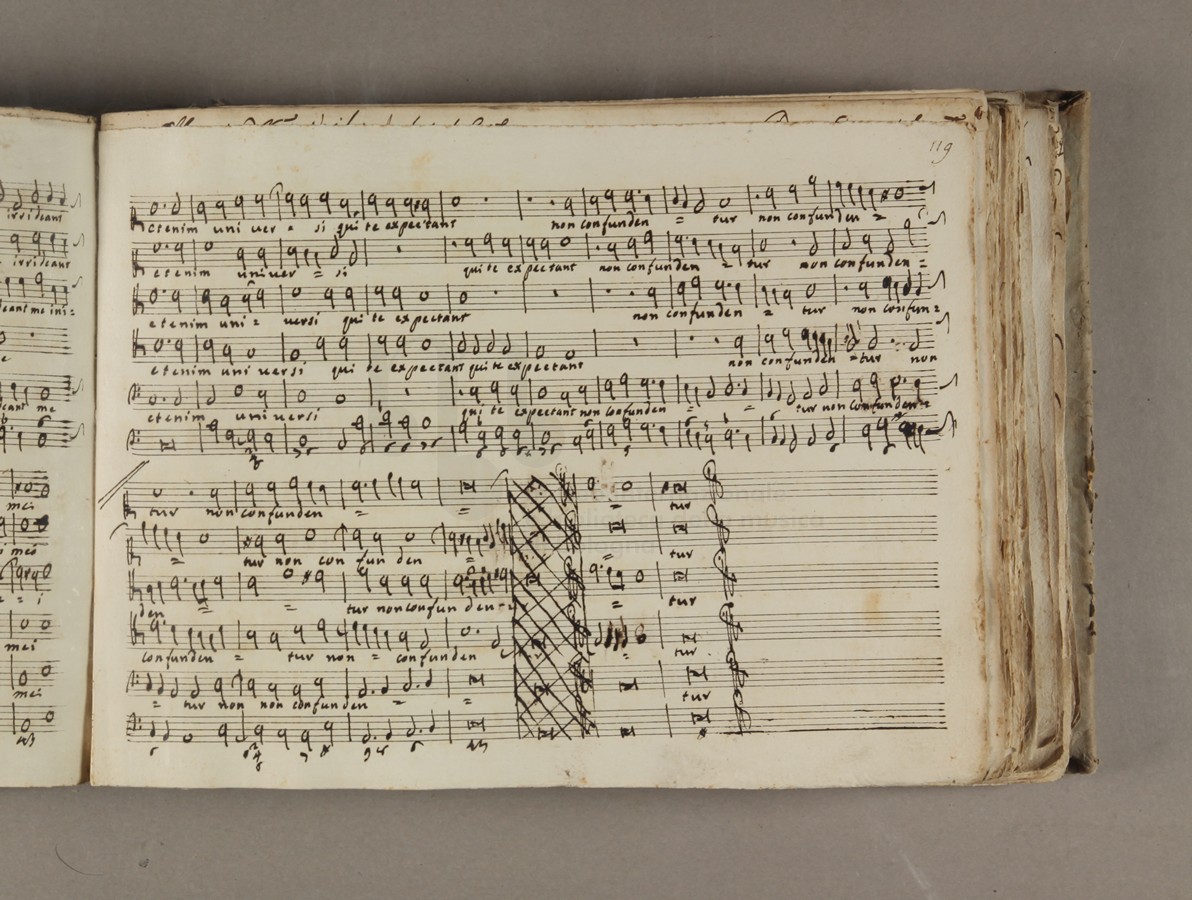 irrideant
irrideant
deant me ini =
e
deant me
mei
mei
= = i
mei
mei
119
etenim uni ver = si qui te expectant non confunden = tur non confunden =
etenim univer = si qui te expectant non confunden = tur non confunden =
etenim uni = versi qui te expectant non confunden = tur non confun =
etenim uni versi qui te expectant qui te expectant non confunden = tur non
etenim universi qui te expectant non confunden = = tur non confunden =
tur non confunden = =
= tur non con fun den = = tur
den = = tur non confun den = = tur
confunden = tur non = confunden = tur
= tur non non confunden = = tur